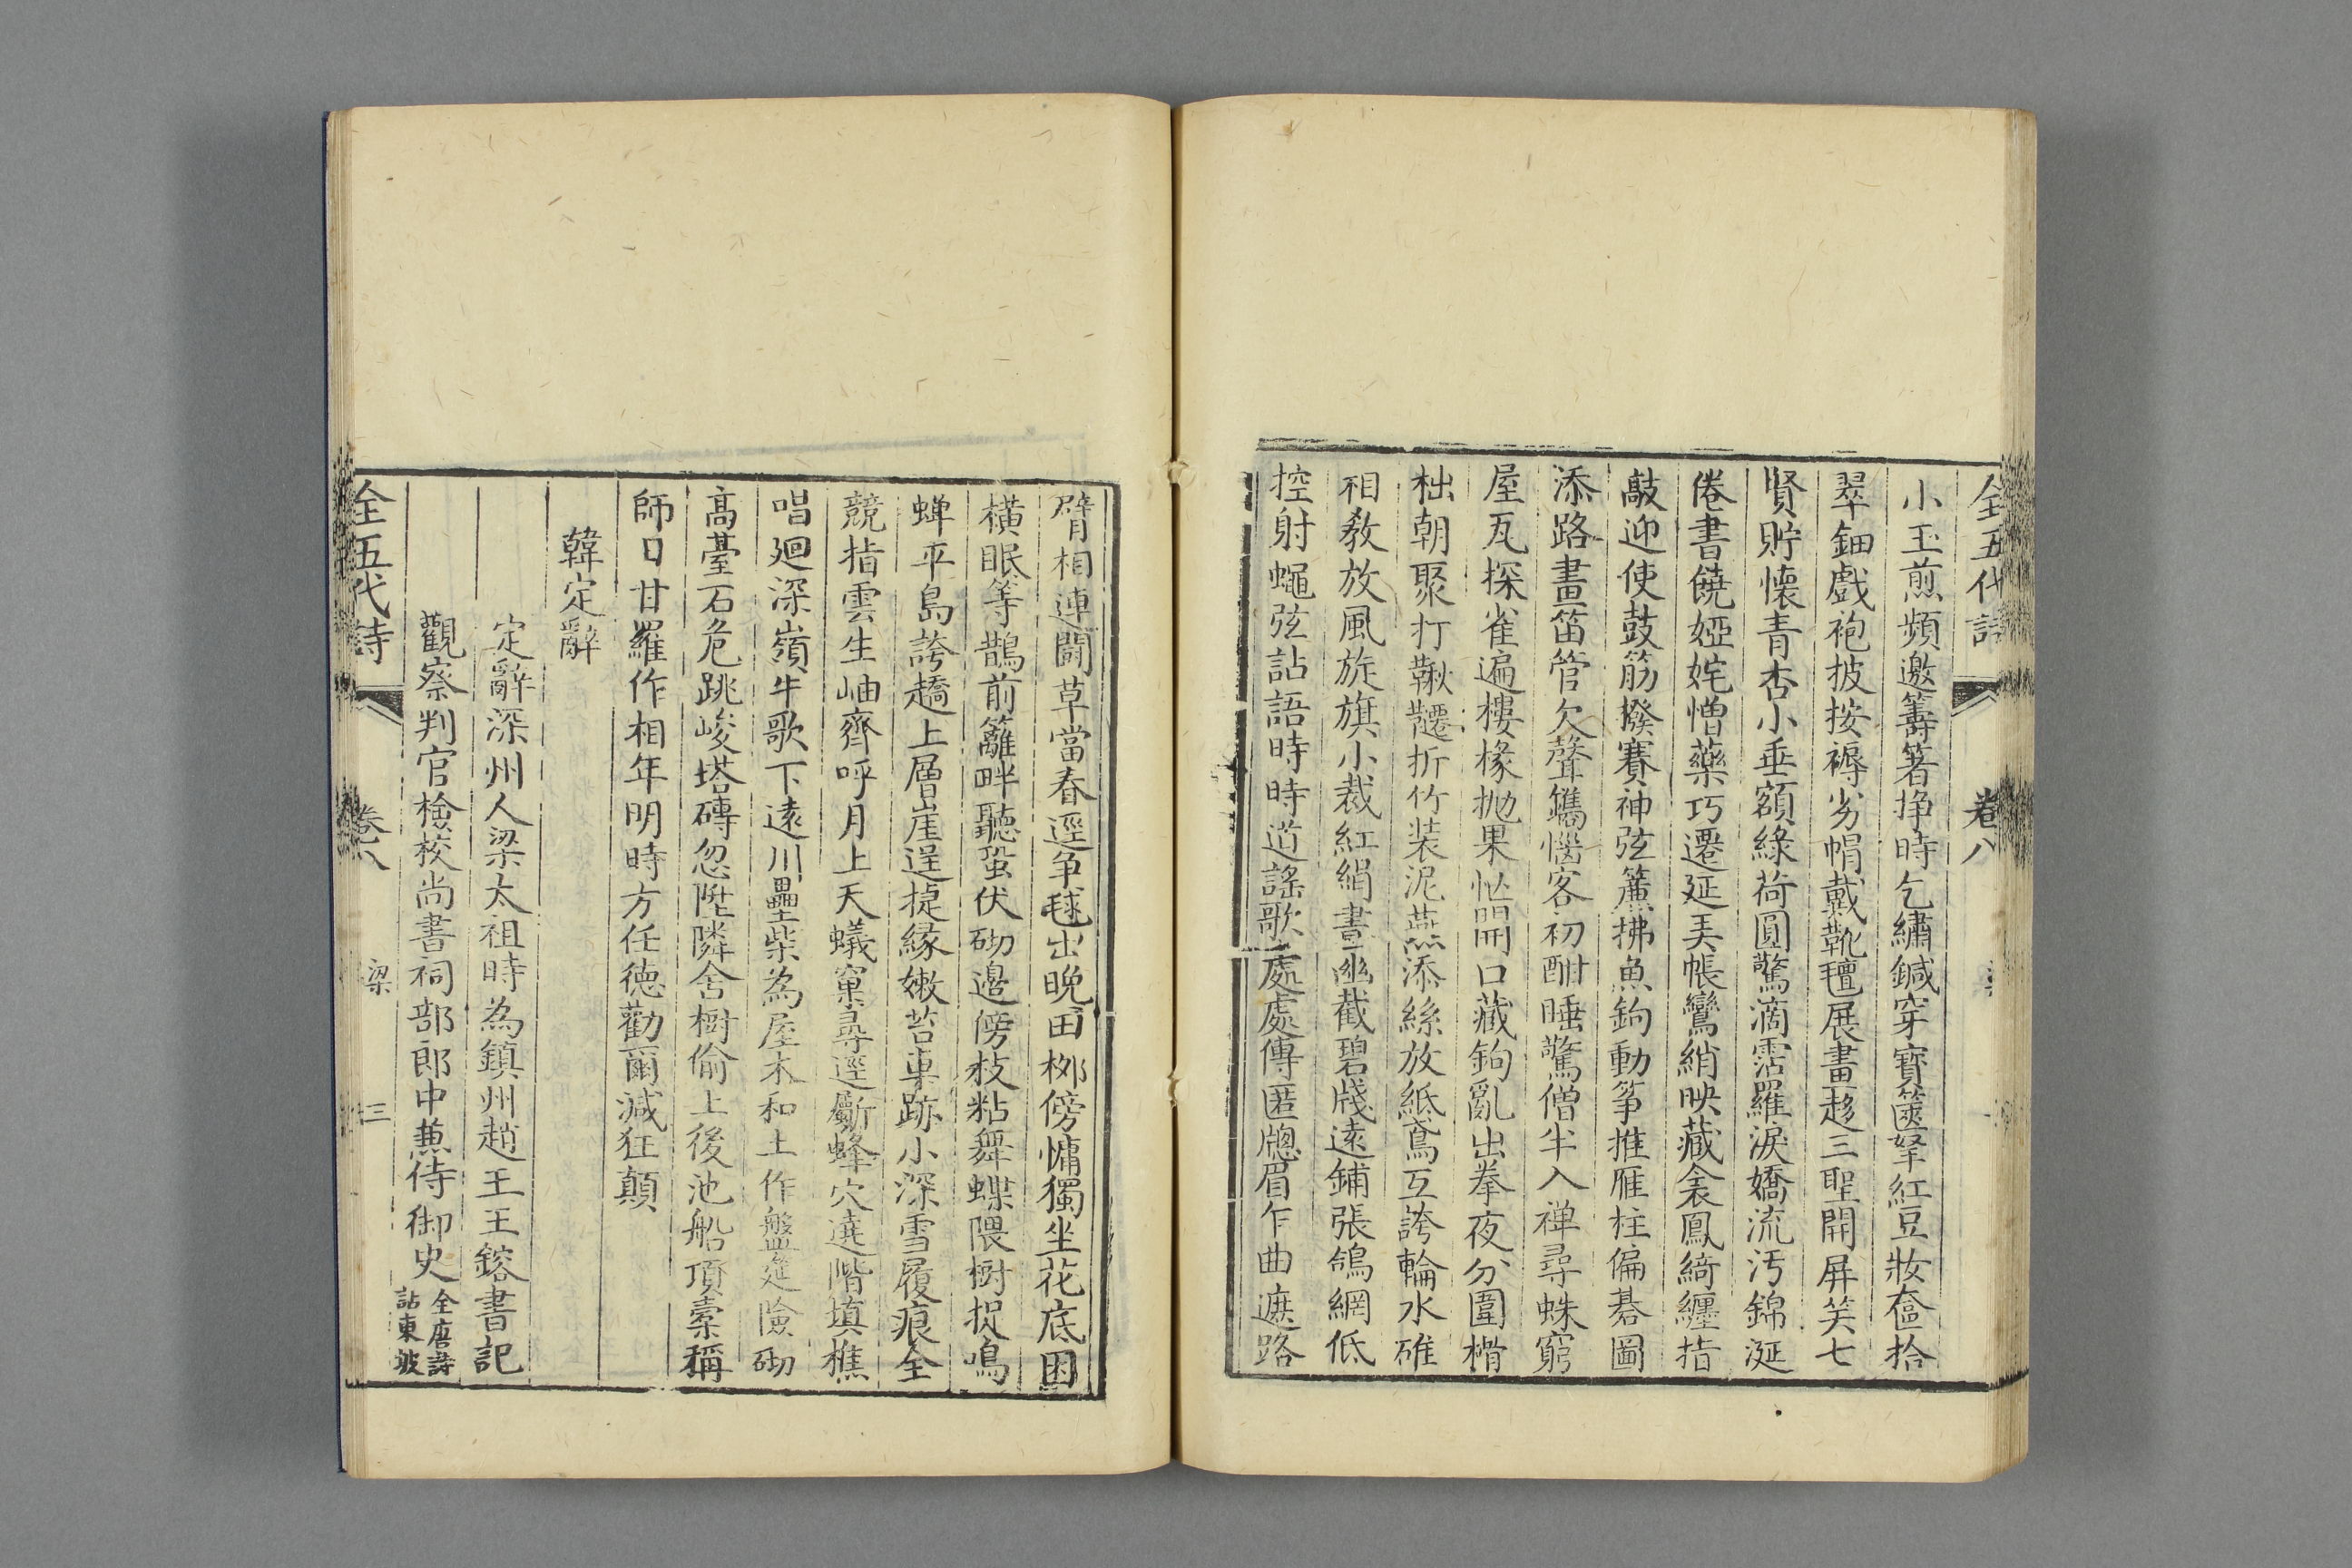 全五代詩　卷八
小玉煎頻邀籌箸掙時乞繡鍼穿寶篋拏紅豆妝奩拾
翠鈿戲袍披按褥劣帽戴靴氊展畫趍三聖開屏笑七
賢貯懷青杏小垂額綠荷圓驚滴霑羅淚嬌流汚錦涎
倦書饒婭姹憎藥巧遷延美帳鸞綃映藏衾鳳綺纏指
敲迎使鼓筋撥賽神弦簾拂魚鉤動筝推雁柱偏碁圖
添路畫笛管欠聲鐫惱客初酣睡驚僧半入禪尋蛛窮
屋瓦探雀遍樓椽拋果忙開口藏鉤亂出拳夜分圍榾
柮朝聚打鞦韆折竹装泥燕添絲放紙鳶互誇輪水碓
相教放風旋旗小裁紅絹書幽截碧牋遠鋪張鴿網低
控射蠅弦詀語時時道謠歌處處傳匿牕眉乍曲遮路
臂相連鬬草當春逕争毬出晚田柳傍慵獨坐花底困
橫眠等鵲前籬畔聽蛩伏砌邊傍枝粘舞蝶隈樹捉鳴
蝉平島誇趫上層崖逞捷緣嫩苔車跡小深雪履痕全
競指雲生岫齊呼月上天蟻窠尋逕斸蜂穴遶階填樵
唱廻深嶺牛歌下遠川壘柴為屋木和土作盤筵險砌
高臺石危跳峻塔磚忽陞隣舍樹偷上後池船項橐稱
師日甘羅作相年明時方任德勸爾減狂顛
韓定辭
定辭深州人梁太祖時為鎮州趙王王鎔書記
觀察判官檢校尚書祠部郎中蕉侍御史全唐詩
詀東坡
全五代詩　卷八　梁　三